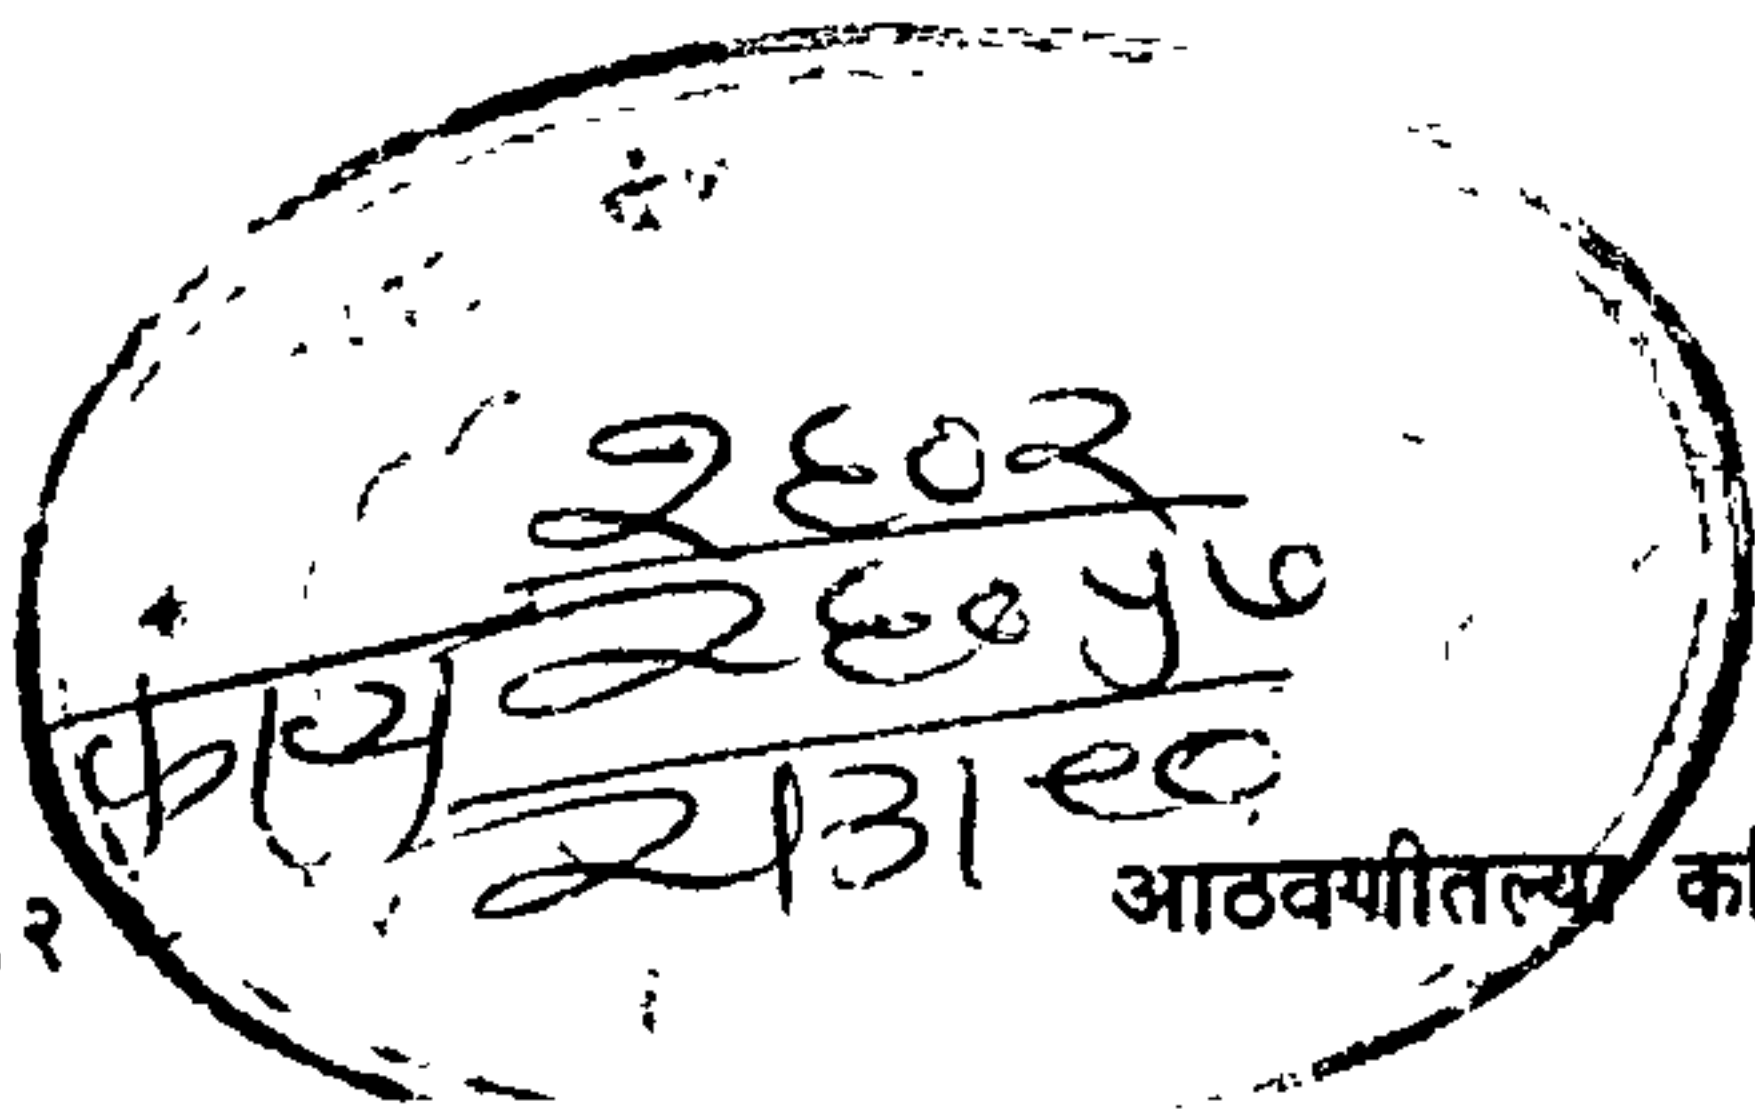 २६०२
काव्य २६०५७
२।३।९८
२ आठवणीतल्या